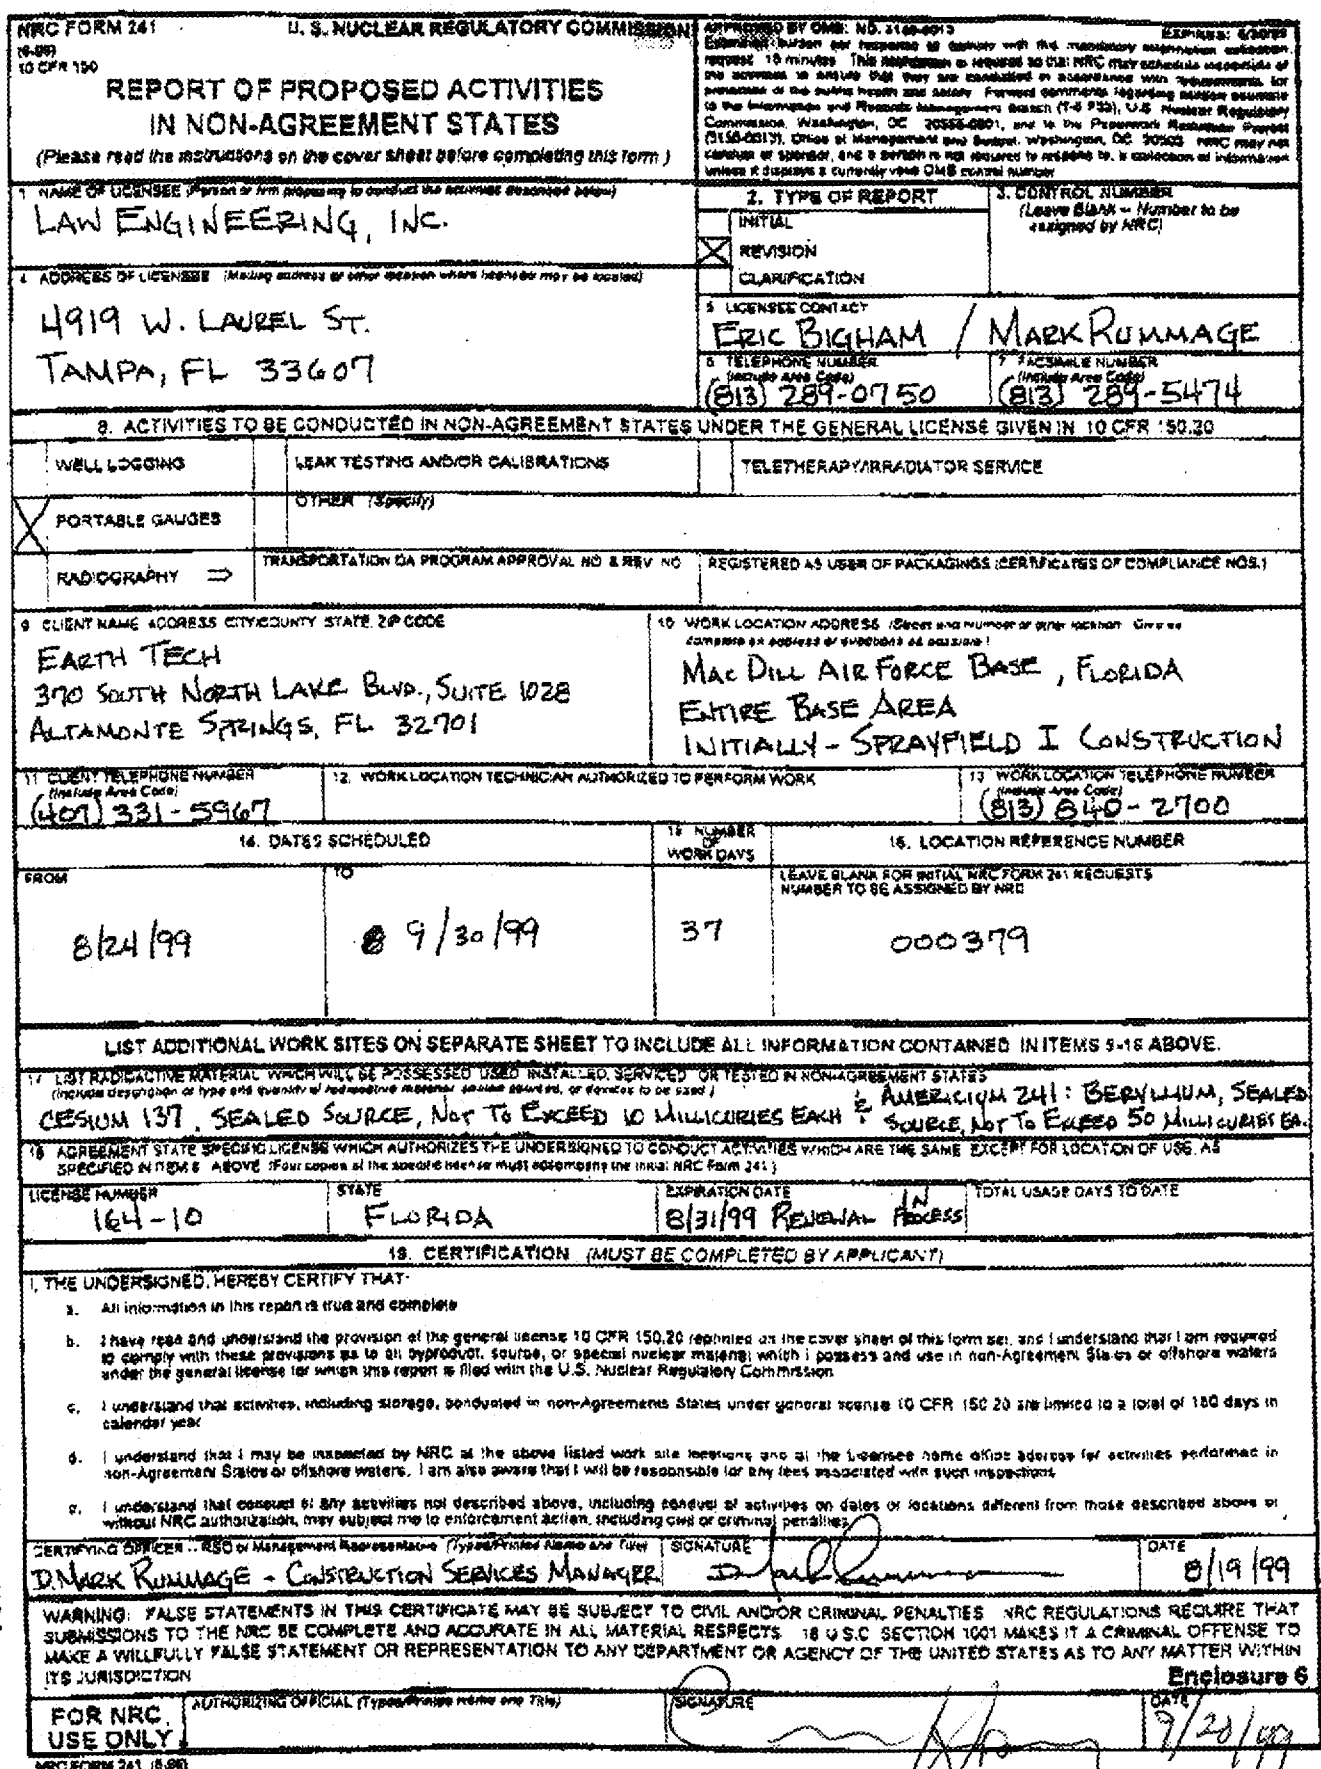 NRC FORM 241
U. S. NUCLEAR REGULATORY COMMISSION
10 CFR 150
REPORT OF PROPOSED ACTIVITIES
IN NON-AGREEMENT STATES
(Please read the instructions on the cover sheet before completing this form.)
APPROVED BY OMB: NO. 3150-0013
EXPIRES: 6/30/99
Estimated burden per response to comply with this mandatory information collection
request: 15 minutes. This notification is required so that NRC may schedule inspections of
the activities to ensure that they are conducted in accordance with requirements for
protection of the public health and safety. Forward comments regarding burden estimate
to the Information and Records Management Branch (T-6 F33), U.S. Nuclear Regulatory
Commission, Washington, DC 20555-0001, and to the Paperwork Reduction Project
(3150-0013), Office of Management and Budget, Washington, DC 20503. NRC may not
conduct or sponsor, and a person is not required to respond to, a collection of information
unless it displays a currently valid OMB control number
1. NAME OF LICENSEE (Person or firm proposing to conduct the activities described below)
LAW ENGINEERING, INC.
2. TYPE OF REPORT
INITIAL
X REVISION
CLARIFICATION
3. CONTROL NUMBER
(Leave Blank - Number to be
assigned by NRC)
4. ADDRESS OF LICENSEE (Mailing address or other location where licensee may be located)
4919 W. LAUREL ST.
TAMPA, FL 33607
5. LICENSEE CONTACT
ERIC BIGHAM / MARK RUMMAGE
6. TELEPHONE NUMBER
(Include Area Code)
(813) 289-0750
7. FACSIMILE NUMBER
(Include Area Code)
(813) 289-5474
8. ACTIVITIES TO BE CONDUCTED IN NON-AGREEMENT STATES UNDER THE GENERAL LICENSE GIVEN IN 10 CFR 150.20
WELL LOGGING
LEAK TESTING AND/OR CALIBRATIONS
TELETHERAPY/IRRADIATOR SERVICE
X PORTABLE GAUGES
OTHER (Specify)
RADIOGRAPHY ⇒
TRANSPORTATION QA PROGRAM APPROVAL NO. & REV. NO.
REGISTERED AS USER OF PACKAGINGS (CERTIFICATES OF COMPLIANCE NOS.)
9. CLIENT NAME, ADDRESS, CITY/COUNTY, STATE, ZIP CODE
EARTH TECH
370 SOUTH NORTH LAKE BLVD., SUITE 1028
ALTAMONTE SPRINGS, FL 32701
10. WORK LOCATION ADDRESS (Street and number or other location. Give as
complete an address or directions as possible.)
MAC DILL AIR FORCE BASE, FLORIDA
ENTIRE BASE AREA
INITIALLY - SPRAYFIELD I CONSTRUCTION
11. CLIENT TELEPHONE NUMBER
(Include Area Code)
(407) 331-5967
12. WORK LOCATION TECHNICIAN AUTHORIZED TO PERFORM WORK
13. WORK LOCATION TELEPHONE NUMBER
(Include Area Code)
(813) 840-2700
14. DATES SCHEDULED
15. NUMBER
OF
WORK DAYS
16. LOCATION REFERENCE NUMBER
FROM
8/24/99
TO
9/30/99
37
LEAVE BLANK FOR INITIAL NRC FORM 241 REQUESTS
NUMBER TO BE ASSIGNED BY NRC
000379
LIST ADDITIONAL WORK SITES ON SEPARATE SHEET TO INCLUDE ALL INFORMATION CONTAINED IN ITEMS 9-16 ABOVE.
17. LIST RADIOACTIVE MATERIAL WHICH WILL BE POSSESSED, USED, INSTALLED, SERVICED, OR TESTED IN NON-AGREEMENT STATES
(Include description of type and quantity of radioactive material, sealed sources, or devices to be used)
CESIUM 137, SEALED SOURCE, NOT TO EXCEED 10 MILLICURIES EACH & AMERICIUM 241: BERYLLIUM, SEALED
SOURCE, NOT TO EXCEED 50 MILLICURIES EA.
18. AGREEMENT STATE SPECIFIC LICENSE WHICH AUTHORIZES THE UNDERSIGNED TO CONDUCT ACTIVITIES WHICH ARE THE SAME, EXCEPT FOR LOCATION OF USE, AS
SPECIFIED IN ITEM 8 ABOVE (Four copies of the specific license must accompany the initial NRC Form 241.)
LICENSE NUMBER
164-10
STATE
FLORIDA
EXPIRATION DATE
8/31/99 RENEWAL IN PROCESS
TOTAL USAGE DAYS TO DATE
19. CERTIFICATION (MUST BE COMPLETED BY APPLICANT)
I, THE UNDERSIGNED, HEREBY CERTIFY THAT:
a. All information in this report is true and complete
b. I have read and understand the provision of the general license 10 CFR 150.20 reprinted on the cover sheet of this form set, and I understand that I am required
to comply with these provisions as to all byproduct, source, or special nuclear material which I possess and use in non-Agreement States or offshore waters
under the general license for which this report is filed with the U.S. Nuclear Regulatory Commission
c. I understand that activities, including storage, conducted in non-Agreements States under general license 10 CFR 150.20 are limited to a total of 180 days in
calendar year
d. I understand that I may be inspected by NRC at the above listed work site locations and at the Licensee home office address for activities performed in
non-Agreement States or offshore waters. I am also aware that I will be responsible for any fees associated with such inspections
e. I understand that conduct of any activities not described above, including conduct of activities on dates or locations different from those described above or
without NRC authorization, may subject me to enforcement action, including civil or criminal penalties
CERTIFYING OFFICER - RSO or Management Representative (Typed/Printed Name and Title)
D. MARK RUMMAGE - CONSTRUCTION SERVICES MANAGER
SIGNATURE
D. Mark Rummage
DATE
8/19/99
WARNING: FALSE STATEMENTS IN THIS CERTIFICATE MAY BE SUBJECT TO CIVIL AND/OR CRIMINAL PENALTIES. NRC REGULATIONS REQUIRE THAT
SUBMISSIONS TO THE NRC BE COMPLETE AND ACCURATE IN ALL MATERIAL RESPECTS. 18 U.S.C. SECTION 1001 MAKES IT A CRIMINAL OFFENSE TO
MAKE A WILLFULLY FALSE STATEMENT OR REPRESENTATION TO ANY DEPARTMENT OR AGENCY OF THE UNITED STATES AS TO ANY MATTER WITHIN
ITS JURISDICTION
Enclosure 6
FOR NRC
USE ONLY
AUTHORIZING OFFICIAL (Typed/Printed Name and Title)
SIGNATURE
DATE
9/20/99
NRC FORM 241